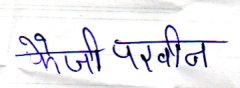 फैजी परवीन